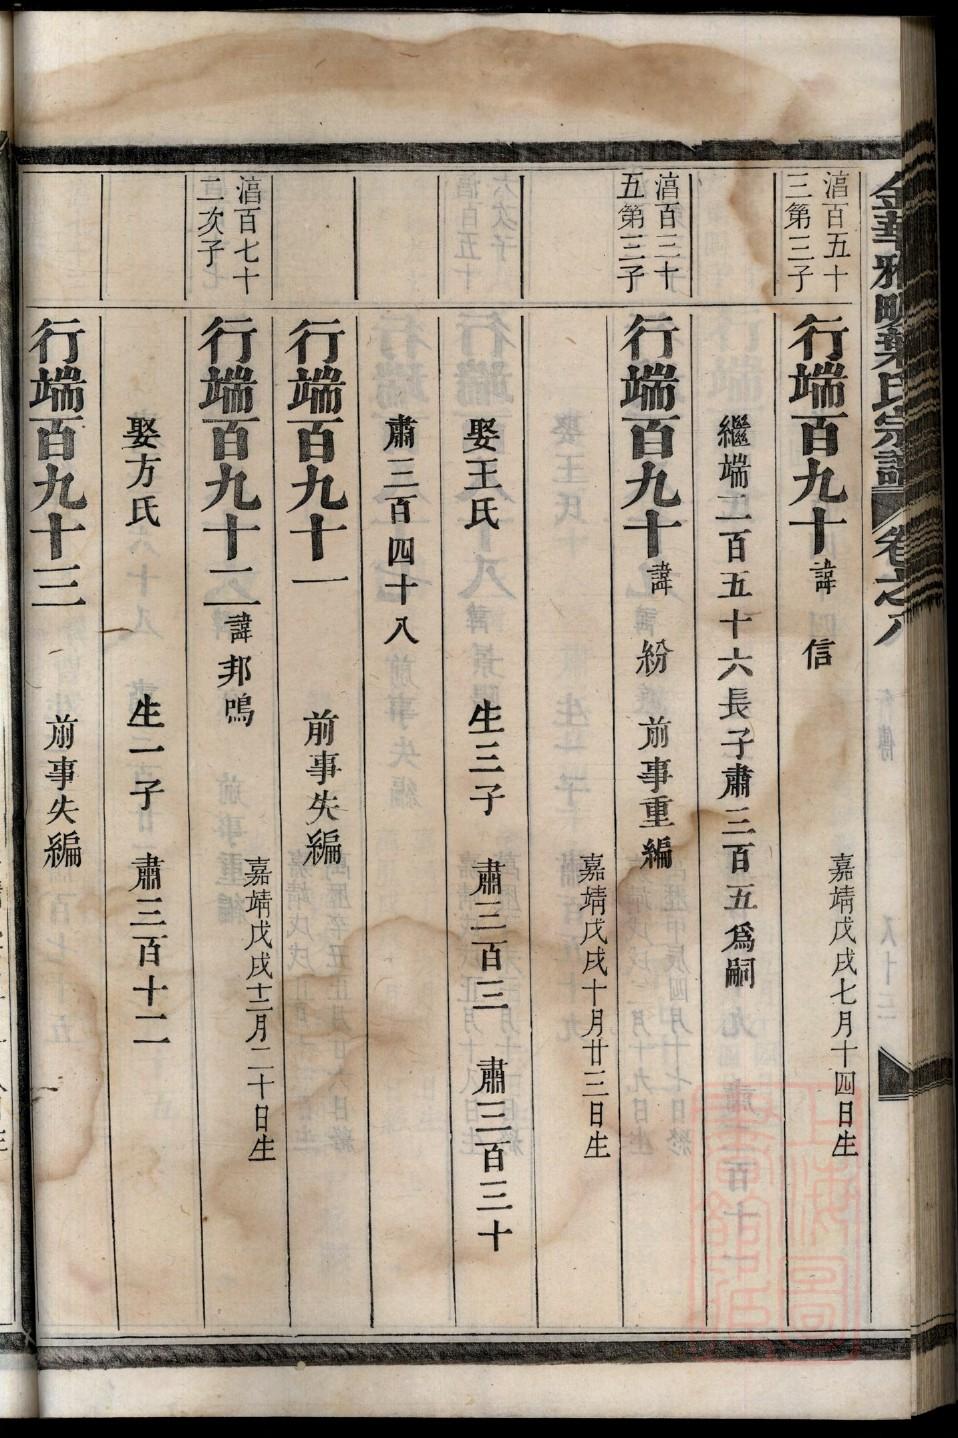 金華雅畈葉氏宗譜 卷之八
湻百五十
三第三子
行端百九十 諱 信
嘉靖戊戌七月十四日生
繼端一百五十六長子肅三百五為嗣
湻百三十
五第三子
行端百九十 諱 紛 前事重編
嘉靖戊戌十月廿三日生
娶王氏 生三子 肅三百三 肅三百三十
肅三百四十八
行端百九十一 前事失編
湻百七十
二次子
行端百九十二 諱邦鳴
嘉靖戊戌十二月二十日生
娶方氏 生一子 肅三百十二
行端百九十三 前事失編